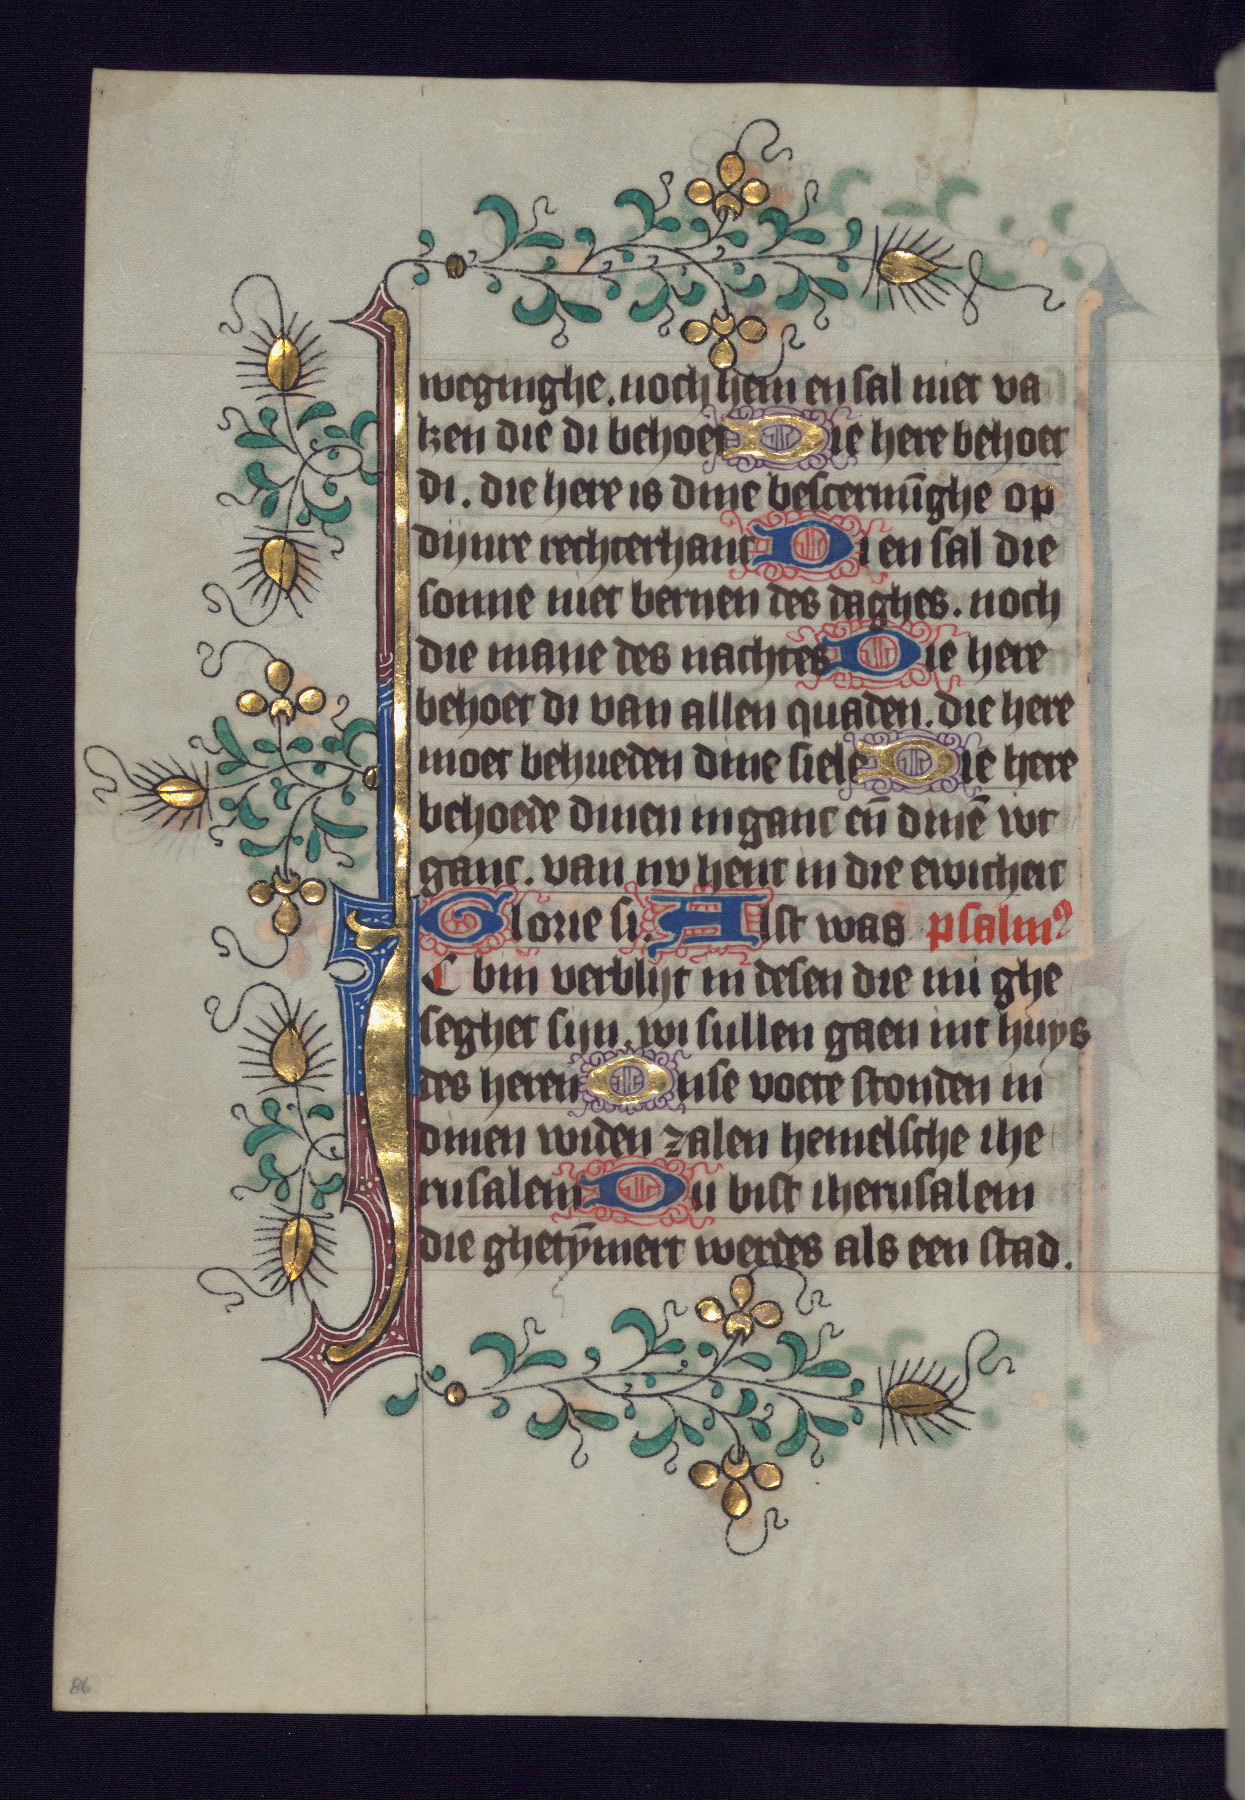 weginghe. noch hem en sal niet va
ken die di behoet Die here behoet
di. die here is dine bescermīghe op
dijnre rechterhant Di en sal die
sonne niet bernen des daghes. noch
die mane des nachtes Die here
behoet di van allen quaden. die here
moet behueden dine siele Die here
behoede dinen inganc eñ dinē wt
ganc. van nv hent in die ewicheit
Glorie si. Alst was psalmꝰ
Ic bin verblijt in desen die mi ghe
seghet sijn. wi sullen gaen int huys
des heren Onse voete stonden in
dinen widen zalen hemelsche ihe
rusalem Du bist iherusalem
die ghetȳmert werdes als een stad.
86